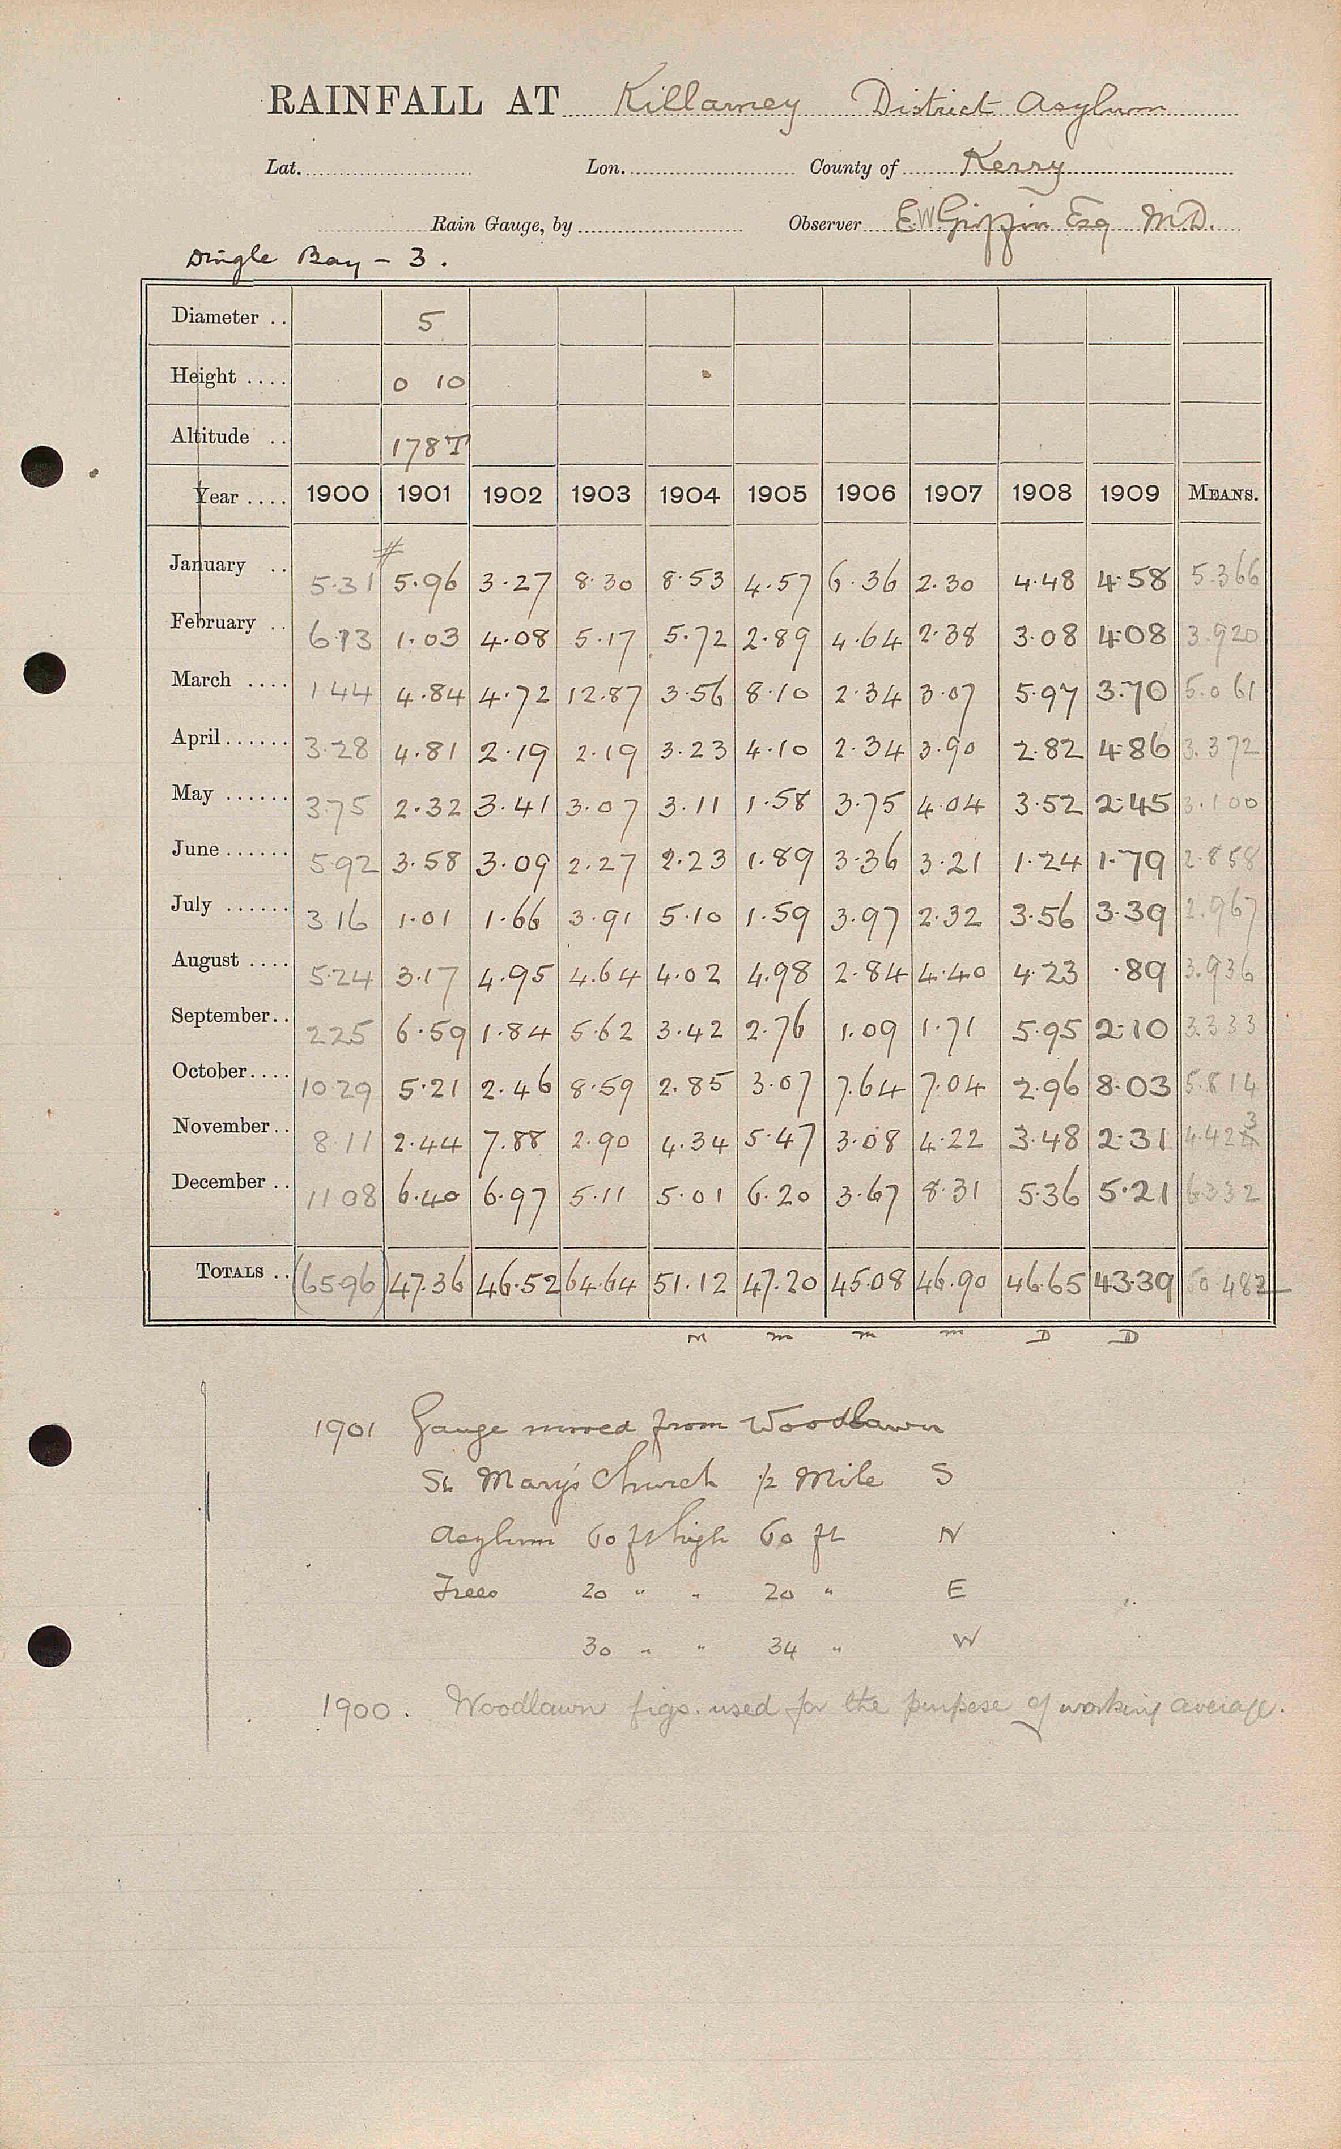 RAINFALL AT Killarney District Asylum
Lat. Lon. County of Kerry
Rain Gauge, by Observer E.W. Griffin Esq M.D.
Dingle Bay - 3.
Diameter .. 5
Height .... 0 10
Altitude .. 178 T
Year .... 1900 1901 1902 1903 1904 1905 1906 1907 1908 1909 MEANS.
#
January .. 5.31 5.96 3.27 8.30 8.53 4.57 6.36 2.30 4.48 4.58 5.366
February .. 6.73 1.03 4.08 5.17 5.72 2.89 4.64 2.38 3.08 4.08 3.920
March .... 1 44 4.84 4.72 12.87 3.56 8.10 2.34 3.07 5.97 3.70 5.061
April ...... 3.28 4.81 2.19 2.19 3.23 4.10 2.34 3.90 2.82 4.86 3.372
May ...... 3 75 2.32 3.41 3.07 3.11 1.58 3.75 4.04 3.52 2.45 3.100
June ...... 5.92 3.58 3.09 2.27 2.23 1.89 3.36 3.21 1.24 1.79 2.858
July ...... 3 16 1.01 1.66 3.91 5.10 1.59 3.97 2.32 3.56 3.39 2.967
August .... 5.24 3.17 4.95 4.64 4.02 4.98 2.84 4.40 4.23 .89 3.936
September .. 2 25 6.59 1.84 5.62 3.42 2.76 1.09 1.71 5.95 2.10 3.333
October .... 10 29 5.21 2.46 8.59 2.85 3.07 7.64 7.04 2.96 8.03 5.814
November .. 8.11 2.44 7.88 2.90 4.34 5.47 3.08 4.22 3.48 2.31 4.423
December .. 11 08 6.40 6.97 5.11 5.01 6.20 3.67 8.31 5.36 5.21 6.332
TOTALS .. (65.96) 47.36 46.52 64.64 51.12 47.20 45.08 46.90 46.65 43.39 50.482
M m m m D D
1901 Gauge moved from Woodlawn
St Mary's Church 1/2 Mile S
Asylum 60 ft high 60 ft N
Trees 20 " " 20 " E
30 " " 34 " W
1900. Woodlawn figs. used for the purpose of working average.